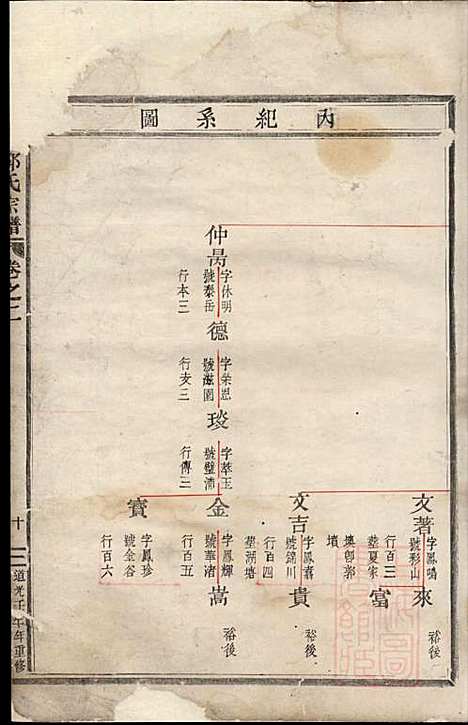 內紀系圖
仲昺
字休明
號泰岳
行本三
德
字榮恩
號滋園
行亥三
琰
字萃玉
號璧浦
行傳三
文著
字鳳鳴
號彤山
行百三
葬夏家
墳
來
裕後
富
文吉
字鳳嘉
號錦川
行百四
葬湖塘
貴
裕後
金
字鳳輝
號華渚
行百五
嵩
裕後
寶
字鳳珍
號金谷
行百六
氏宗譜
卷之二
十
道光壬午年重修